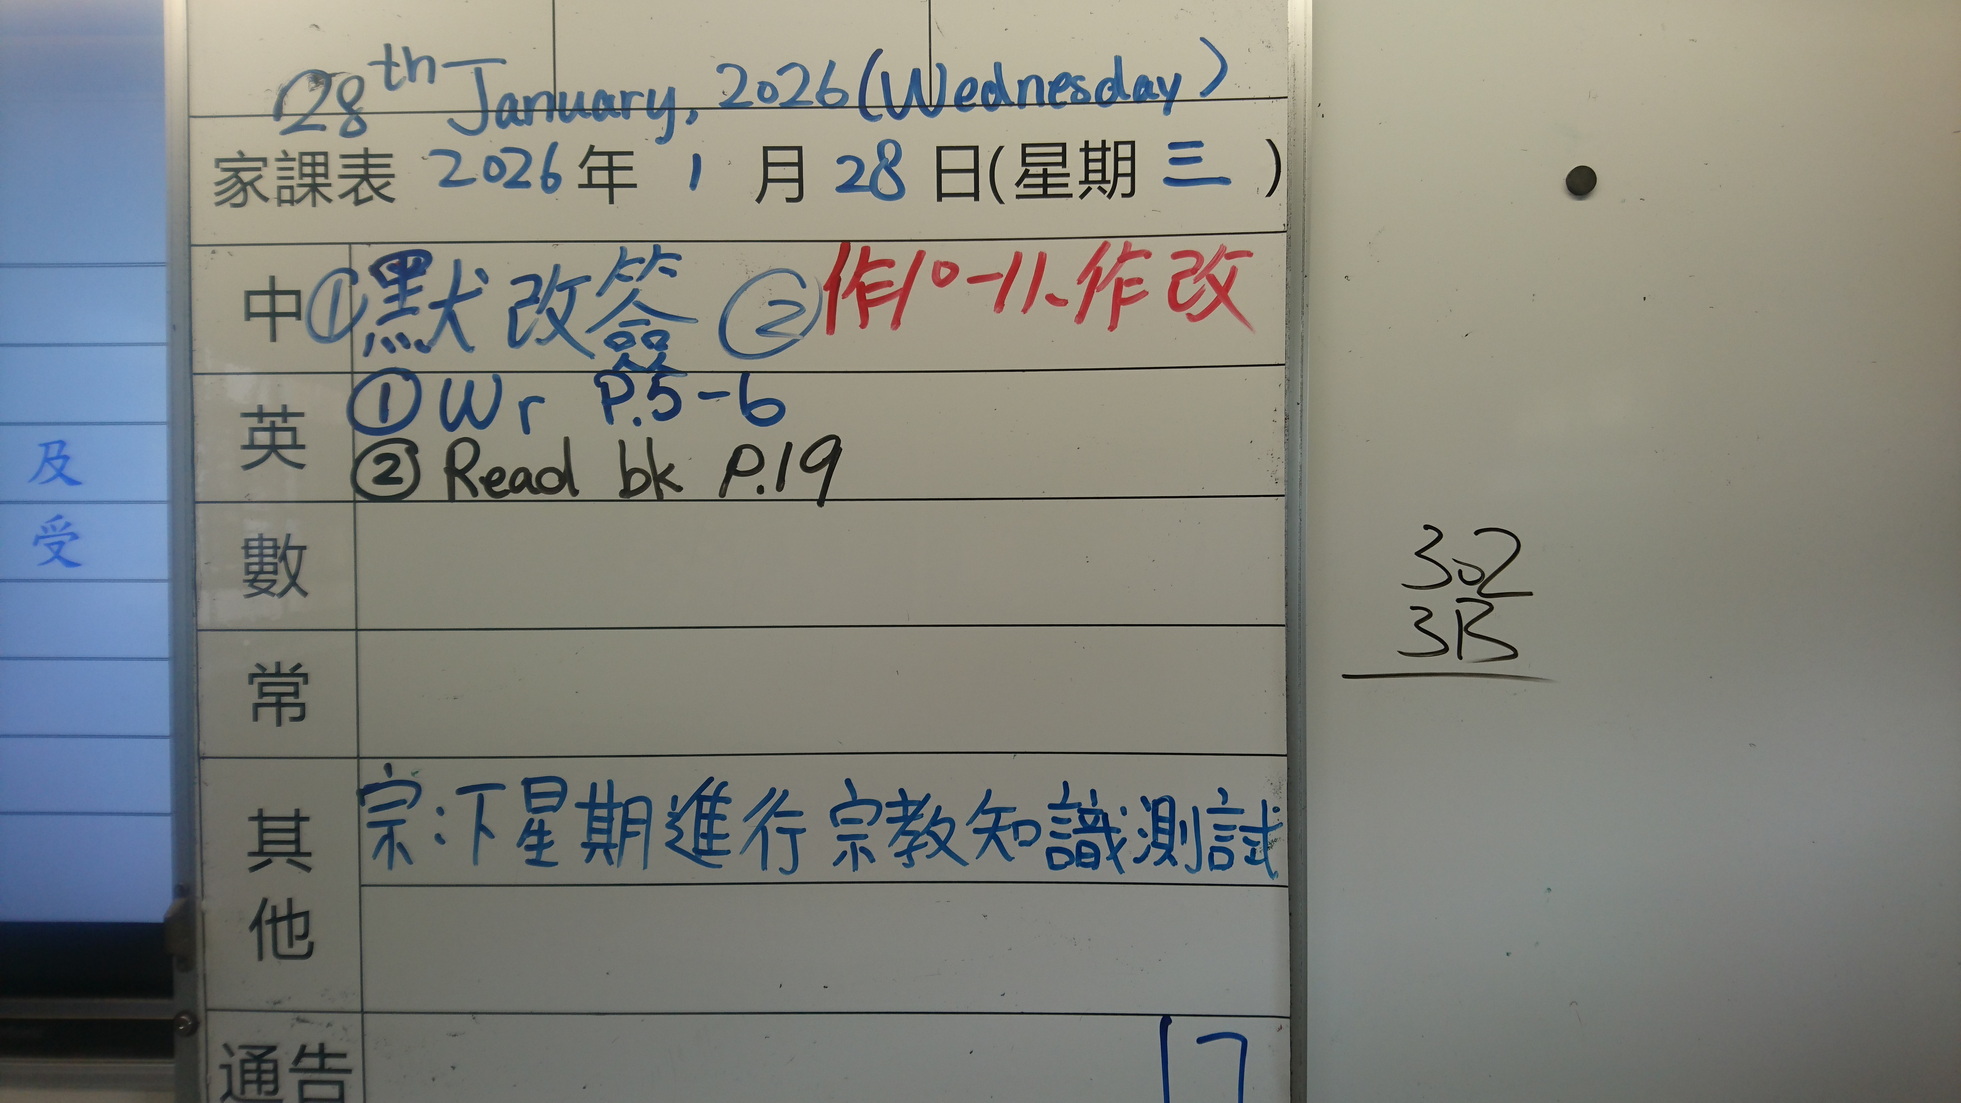 28th January, 2026 (Wednesday)
家課表 2026年 1 月 28 日(星期 三 )
中 ①默改簽 ②作10-11、作改
英 ① Wr P.5-6
② Read bk P.19
數
常
其他 宗:下星期進行宗教知識測試
通告 17
及
受
302
3B